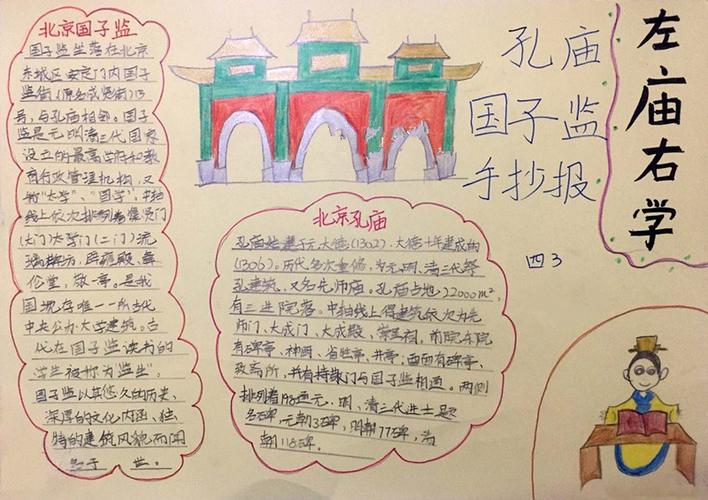 北京国子监
国子监坐落在北京
东城区安定门内国子
监街(原名成贤街)15
号,与孔庙相邻。国子
监是元明清三代国家
设立的最高学府和教
育行政管理机构,又
称“太学”、“国学”,中轴
线上依次排列着集贤门
(大门)太学门(二门)流
璃牌坊,辟雍殿、彝
伦堂,敬一亭。是我
国现存唯一一所古代
中央公办大学建筑。古
代在国子监读书的
学生被称为“监生”。
国子监以其悠久的历史,
深厚的文化内涵,独
特的建筑风貌而闻
于世。
孔庙
国子监
手抄报
四3
左庙右学
北京孔庙
孔庙始建于元大德(1302),大德十年建成的
(1306)。历代多次重修,为元、明、清三代祭
孔建筑,又名先师庙。孔庙占地22000m²,
有三进院落。中轴线上得建筑依次为先
师门、大成门、大成殿、崇圣祠。前院东院
有碑亭、神厨、省牲亭、井亭;西面有碑亭、
致斋所,并有持敬门与国子监相通。两侧
排列着198通元、明、清三代进士题
名碑,元朝3碑,明朝77碑,清
朝118碑。